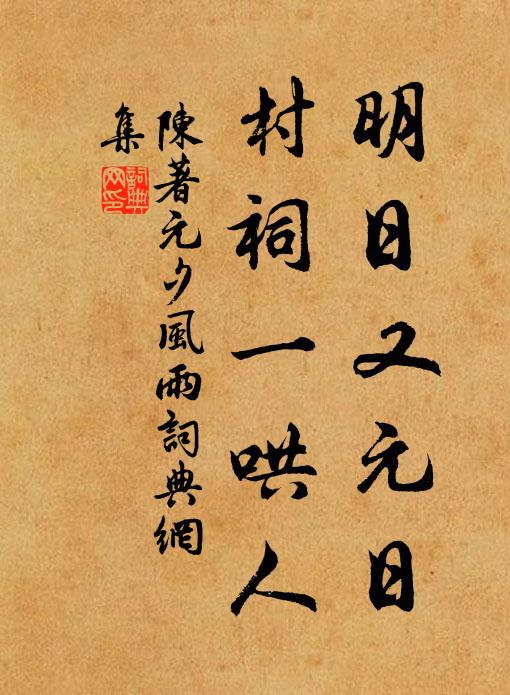 明日又元日
村祠一哄人
陳著元夕風雨詞典網
集
詞典網印